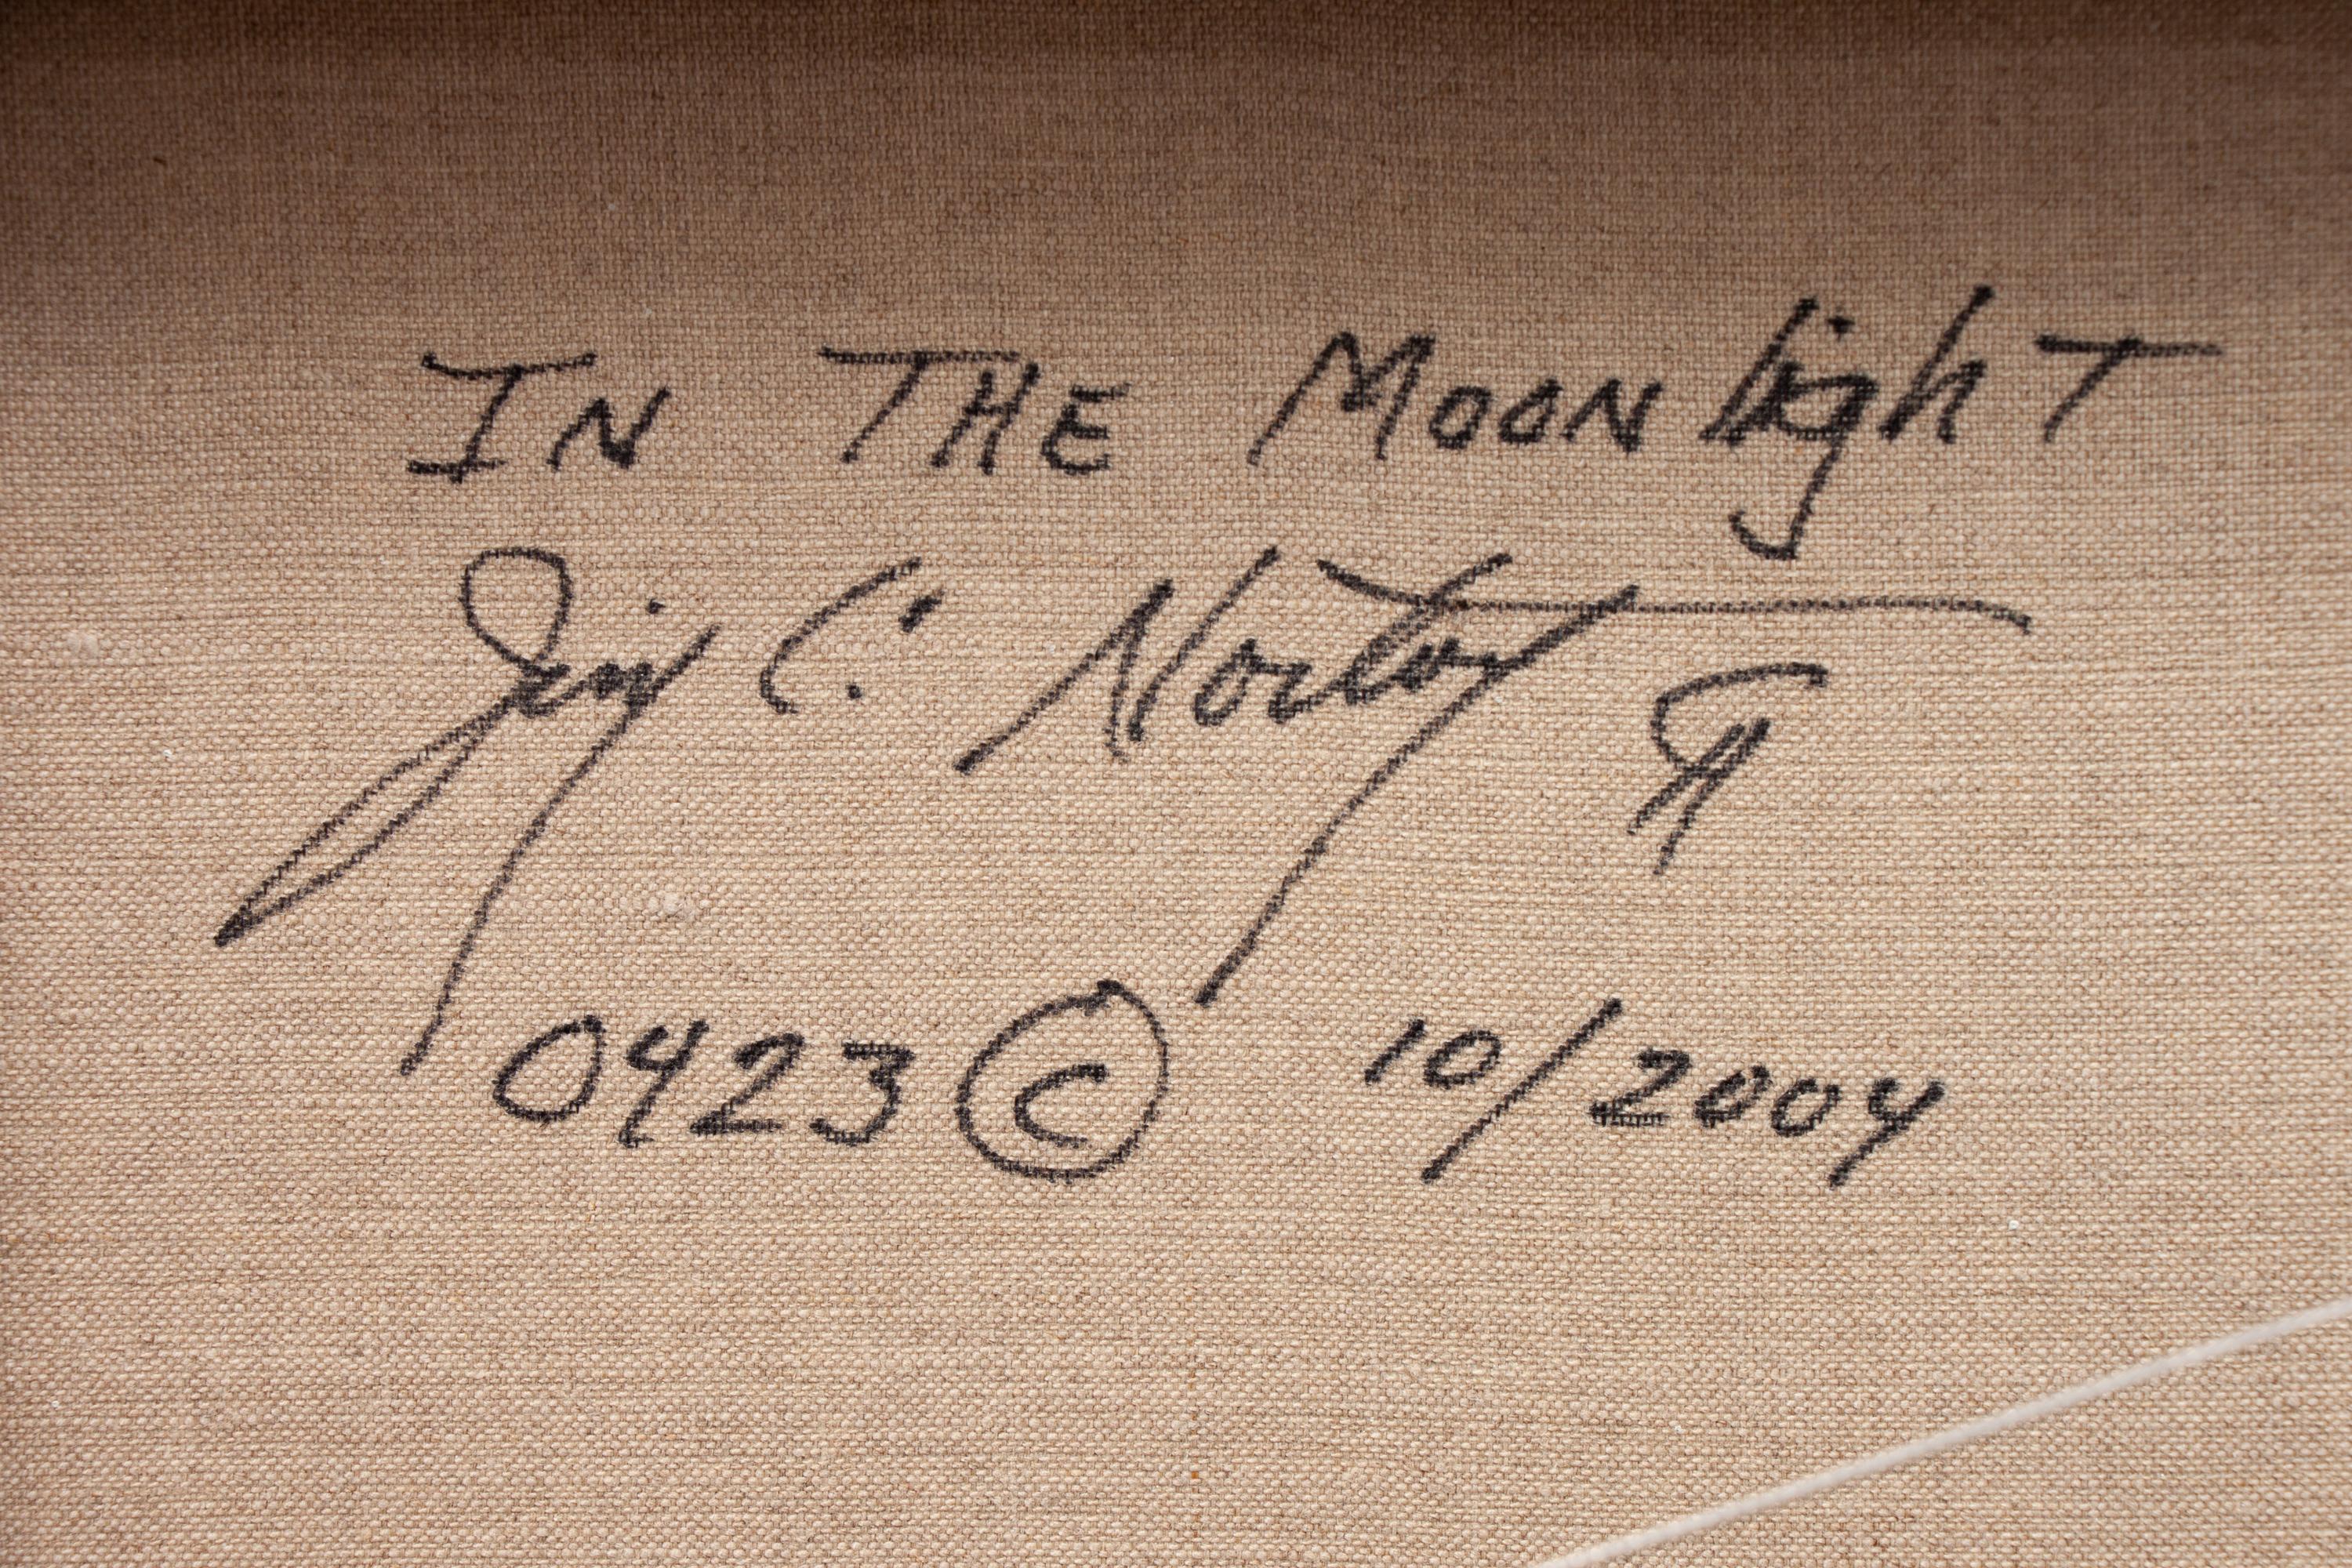 IN THE MOONlighT
Jim C. Norton
0423 © 10/2004